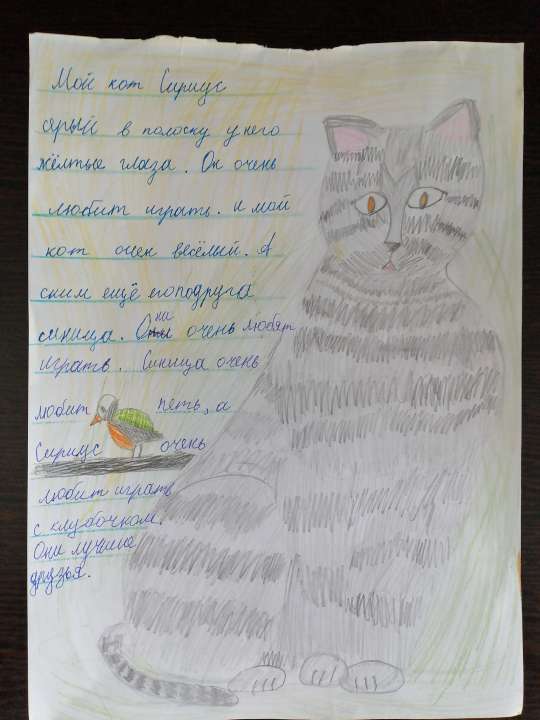 Мой кот Сириус
ярый в полоску у него
жёлтые глаза. Он очень
любит играть. и мой
кот очен весёлый. А
сним ещё егоподруга
синица. Они очень любят
играть. Синица очень
любит петь, а
Сириус очень
любит играть
с клубочком.
Они лучшие
друзья.